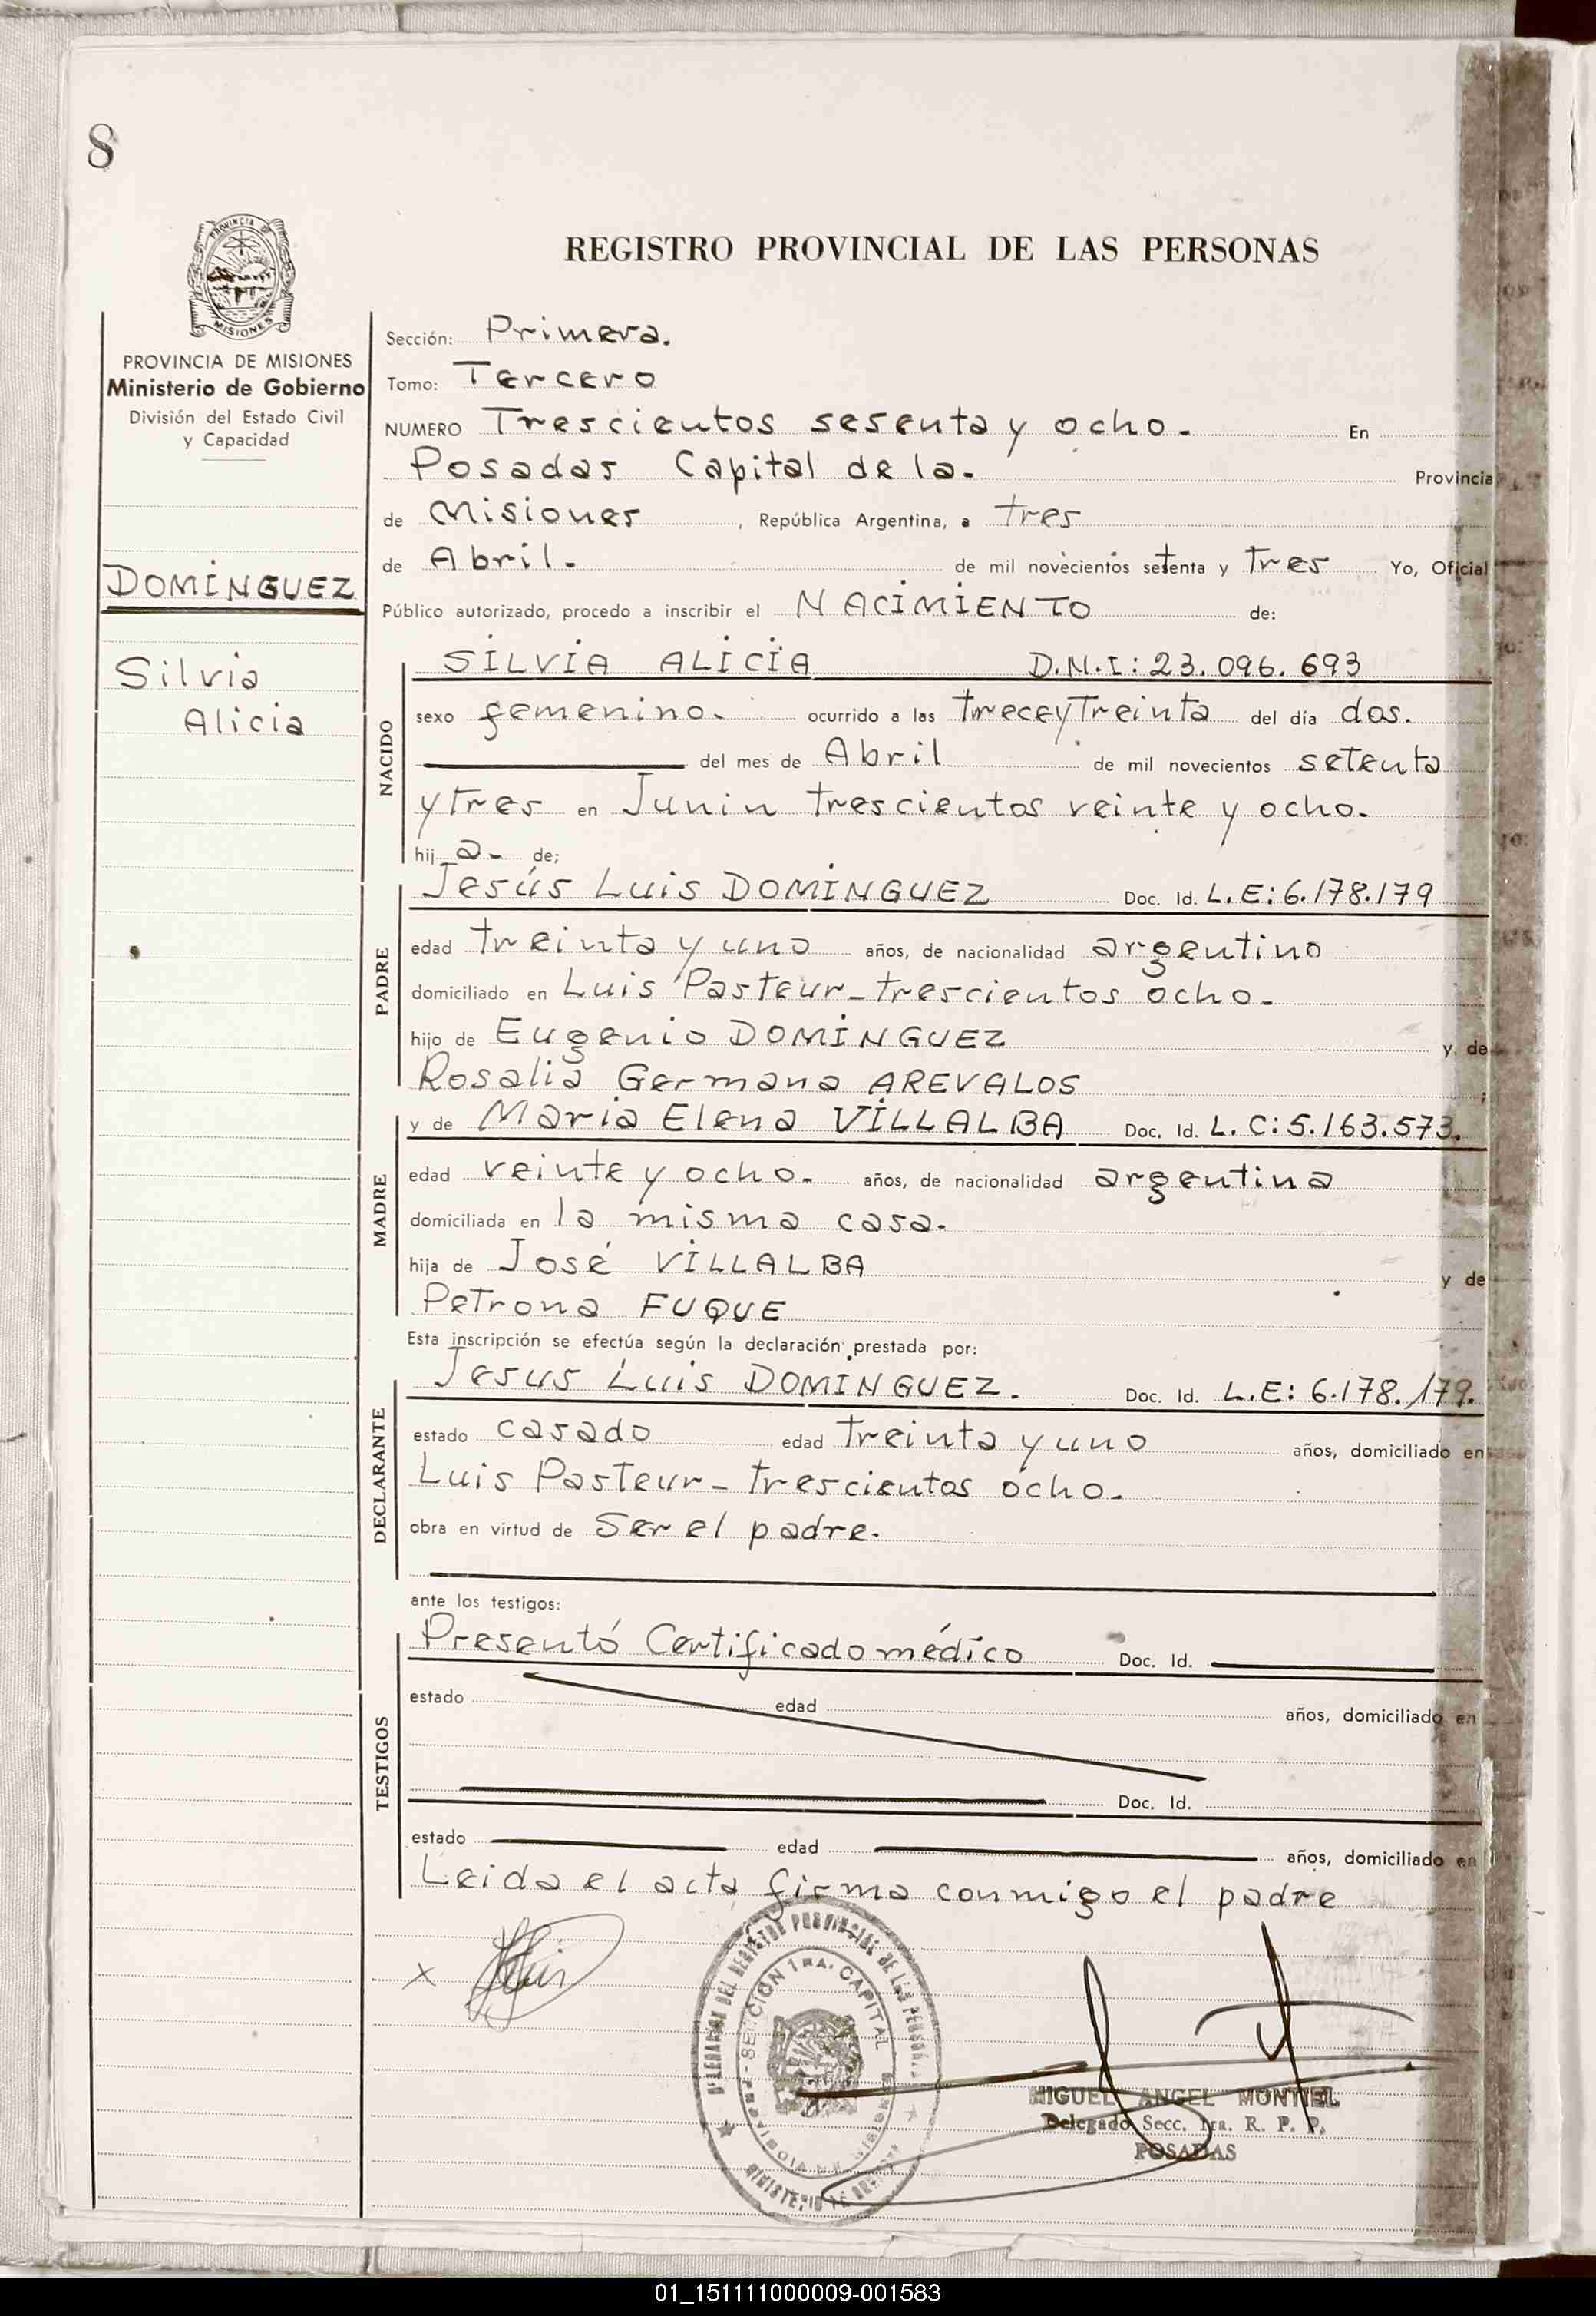 8
PROVINCIA DE MISIONES
PROVINCIA DE MISIONES
Ministerio de Gobierno
División del Estado Civil
y Capacidad
DOMINGUEZ
Silvia
Alicia
REGISTRO PROVINCIAL DE LAS PERSONAS
Sección: Primera.
Tomo: Tercero
NUMERO Trescientos sesenta y ocho. En
Posadas Capital de la. Provincia
de Misiones, República Argentina, a tres
de Abril. de mil novecientos setenta y Tres Yo, Oficial
Público autorizado, procedo a inscribir el NACIMIENTO de:
NACIDO
SILVIA ALICIA D.N.I: 23.096.693
sexo femenino. ocurrido a las trece y Treinta del día dos.
del mes de Abril de mil novecientos setenta
y Tres en Junin trescientos veinte y ocho.
hij a. de;
PADRE
Jesús Luis DOMINGUEZ Doc. Id. L.E: 6.178.179
edad treinta y uno años, de nacionalidad argentino
domiciliado en Luis Pasteur - trescientos ocho.
hijo de Eugenio DOMINGUEZ y de
Rosalia Germana AREVALOS ;
MADRE
y de Maria Elena VILLALBA Doc. Id. L.C: 5.163.573.
edad veinte y ocho. años, de nacionalidad argentina
domiciliada en la misma casa.
hija de José VILLALBA y de
Petrona FUQUE
Esta inscripción se efectúa según la declaración prestada por:
DECLARANTE
Jesus Luis DOMINGUEZ. Doc. Id. L.E: 6.178.179.
estado casado edad Treinta y uno años, domiciliado en
Luis Pasteur - trescientos ocho.
obra en virtud de Ser el padre.
ante los testigos:
TESTIGOS
Presentó Certificado médico Doc. Id.
estado edad años, domiciliado en
Doc. Id.
estado edad años, domiciliado en
Leida el acta firma conmigo el padre
x
DELEGACION DEL REGISTRO PROVINCIAL DE LAS PERSONAS
SECCION 1RA. CAPITAL
PROVINCIA DE MISIONES
MINISTERIO DE GOBIERNO
MIGUEL ANGEL MONTIEL
Delegado Secc. 1ra. R. P. P.
POSADAS
01_151111000009-001583